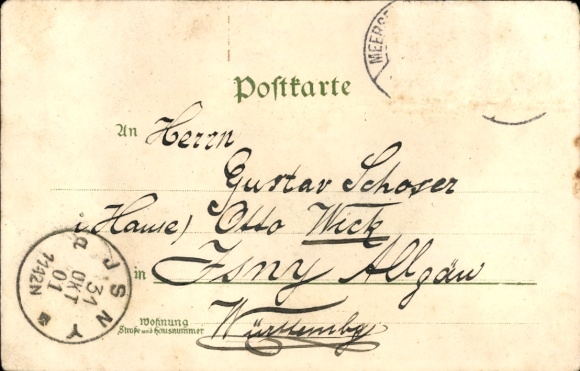 MEERS
Postkarte
An Herrn
Gustav Schoser
i/Hause) Otto Wick
in Isny Allgäu
Wohnung
Straße und Hausnummer
Württembg
JSNY
a
31
OKT
01